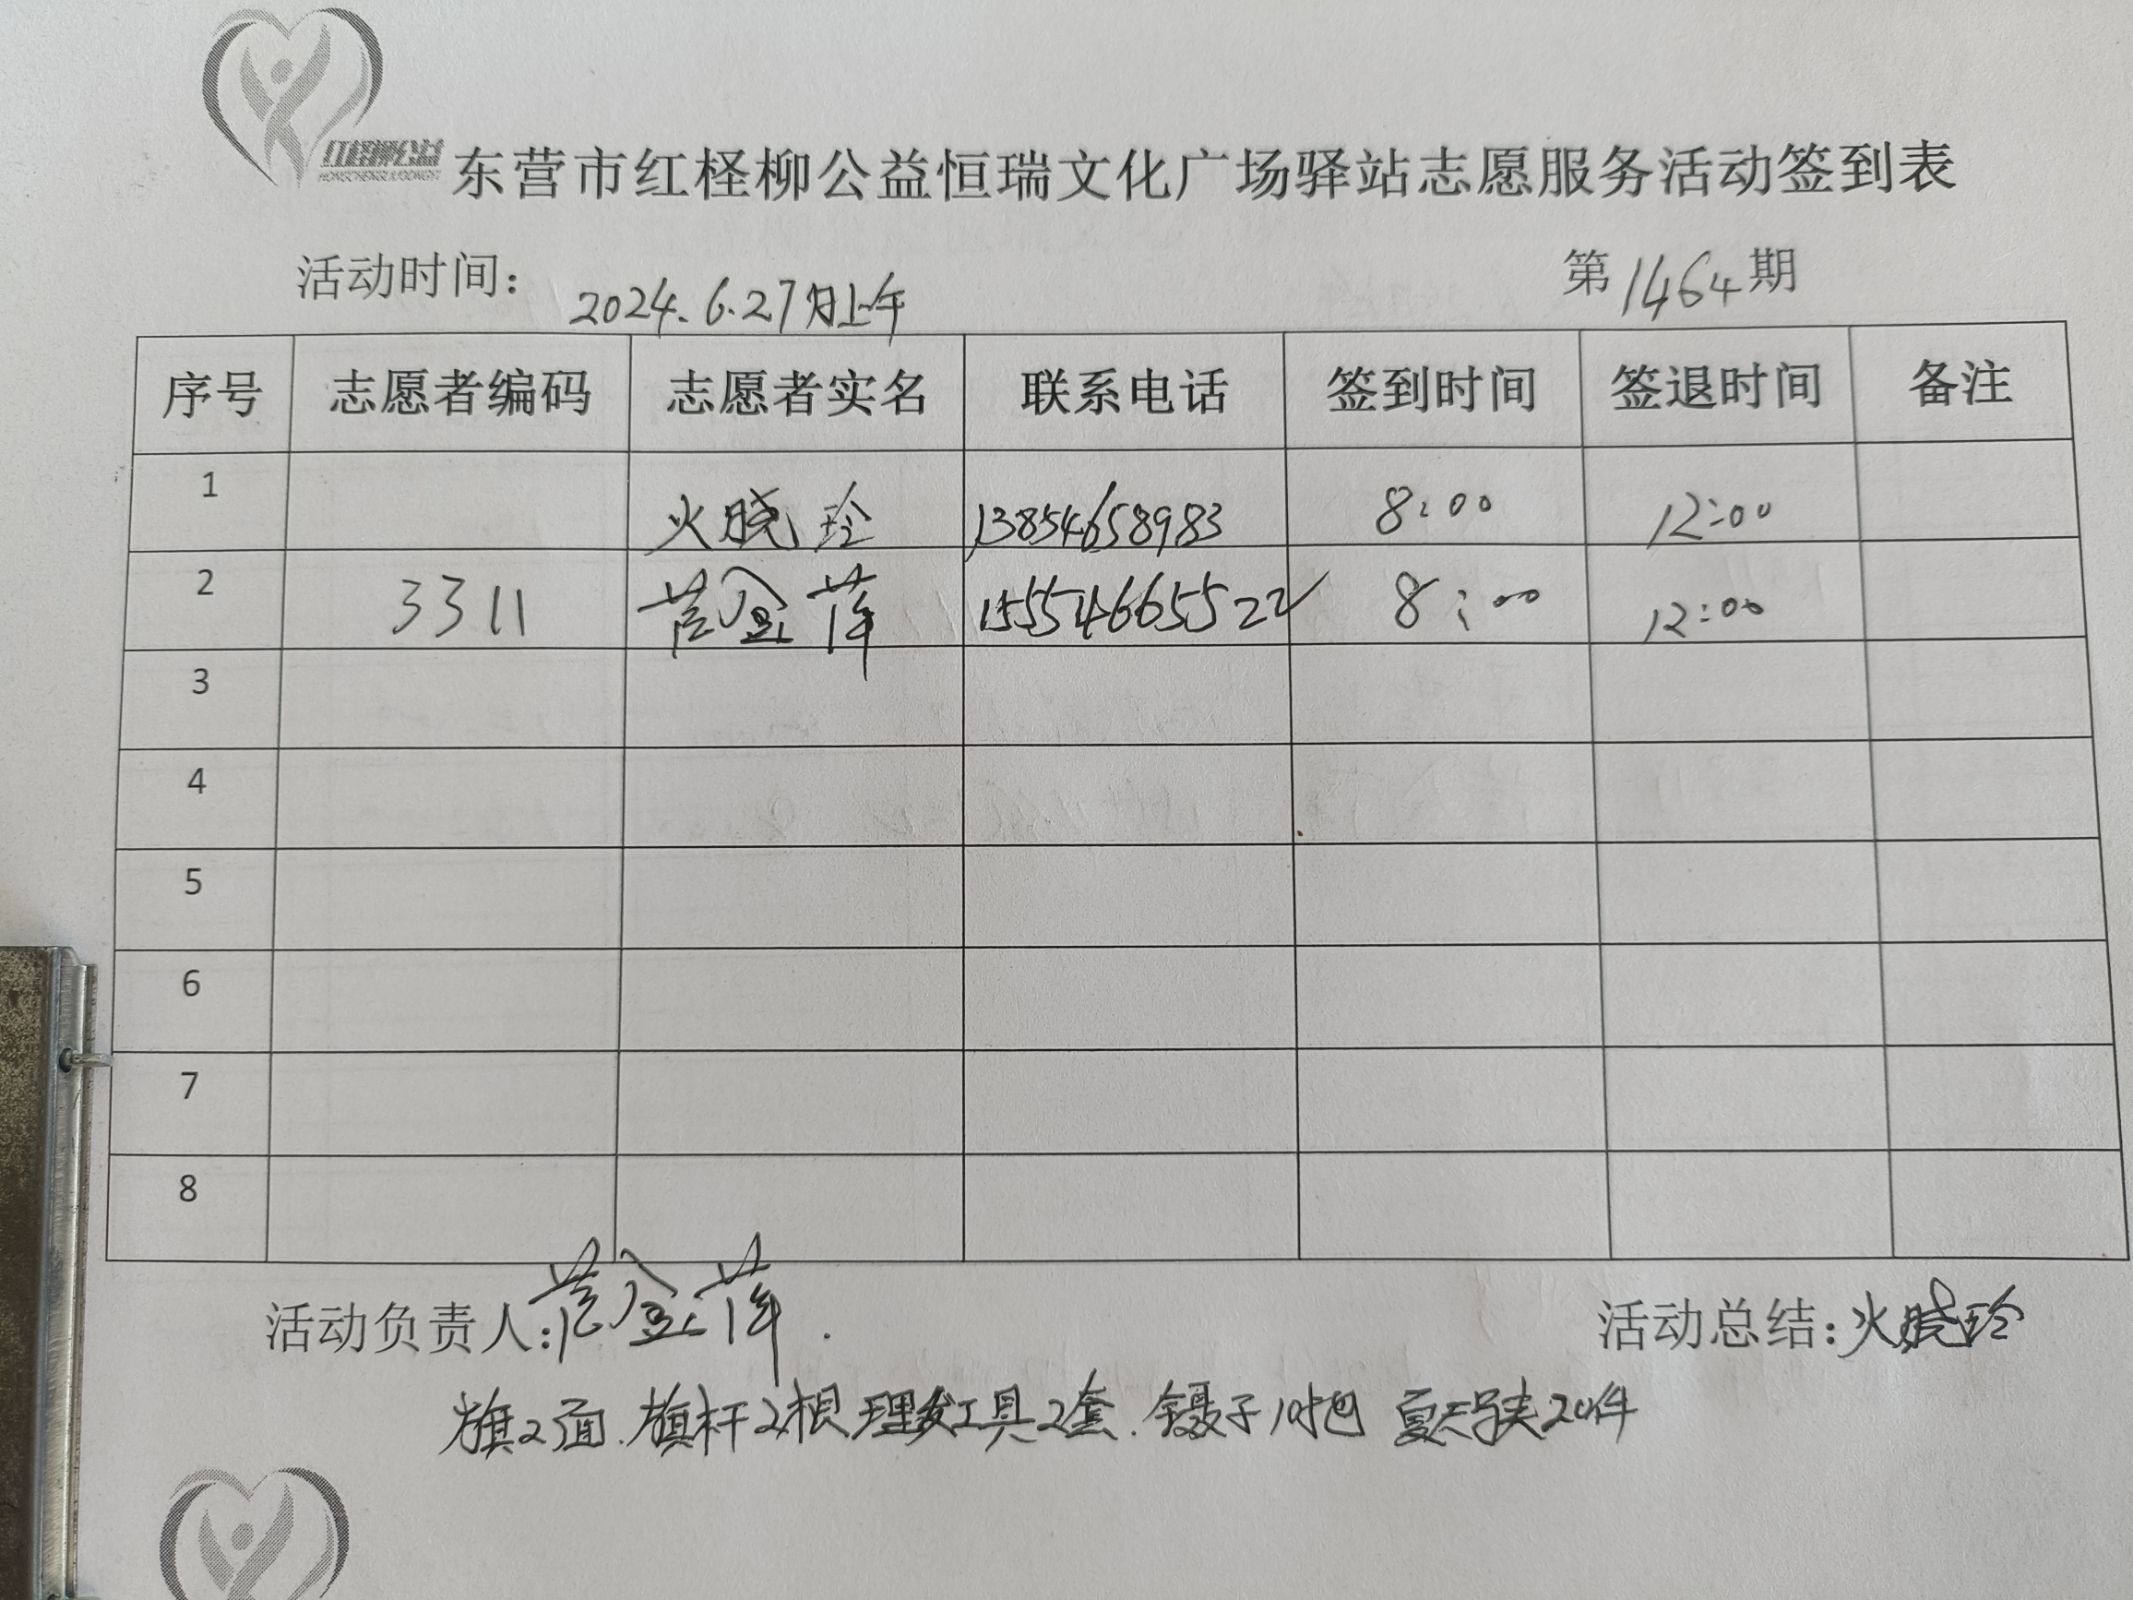 红柽柳公益
HONGCHENGLIUGONGYI
东营市红柽柳公益恒瑞文化广场驿站志愿服务活动签到表
活动时间: 2024.6.27日上午 第1464期
序号 志愿者编码 志愿者实名 联系电话 签到时间 签退时间 备注
1 火晓玲 13854658983 8:00 12:00
2 3311 金萍 15554665522 8:00 12:00
3
4
5
6
7
8
活动负责人: 金萍. 活动总结: 火晓玲
旗2面.旗杆2根 理发工具2套.镊子10包 夏天马夹20件